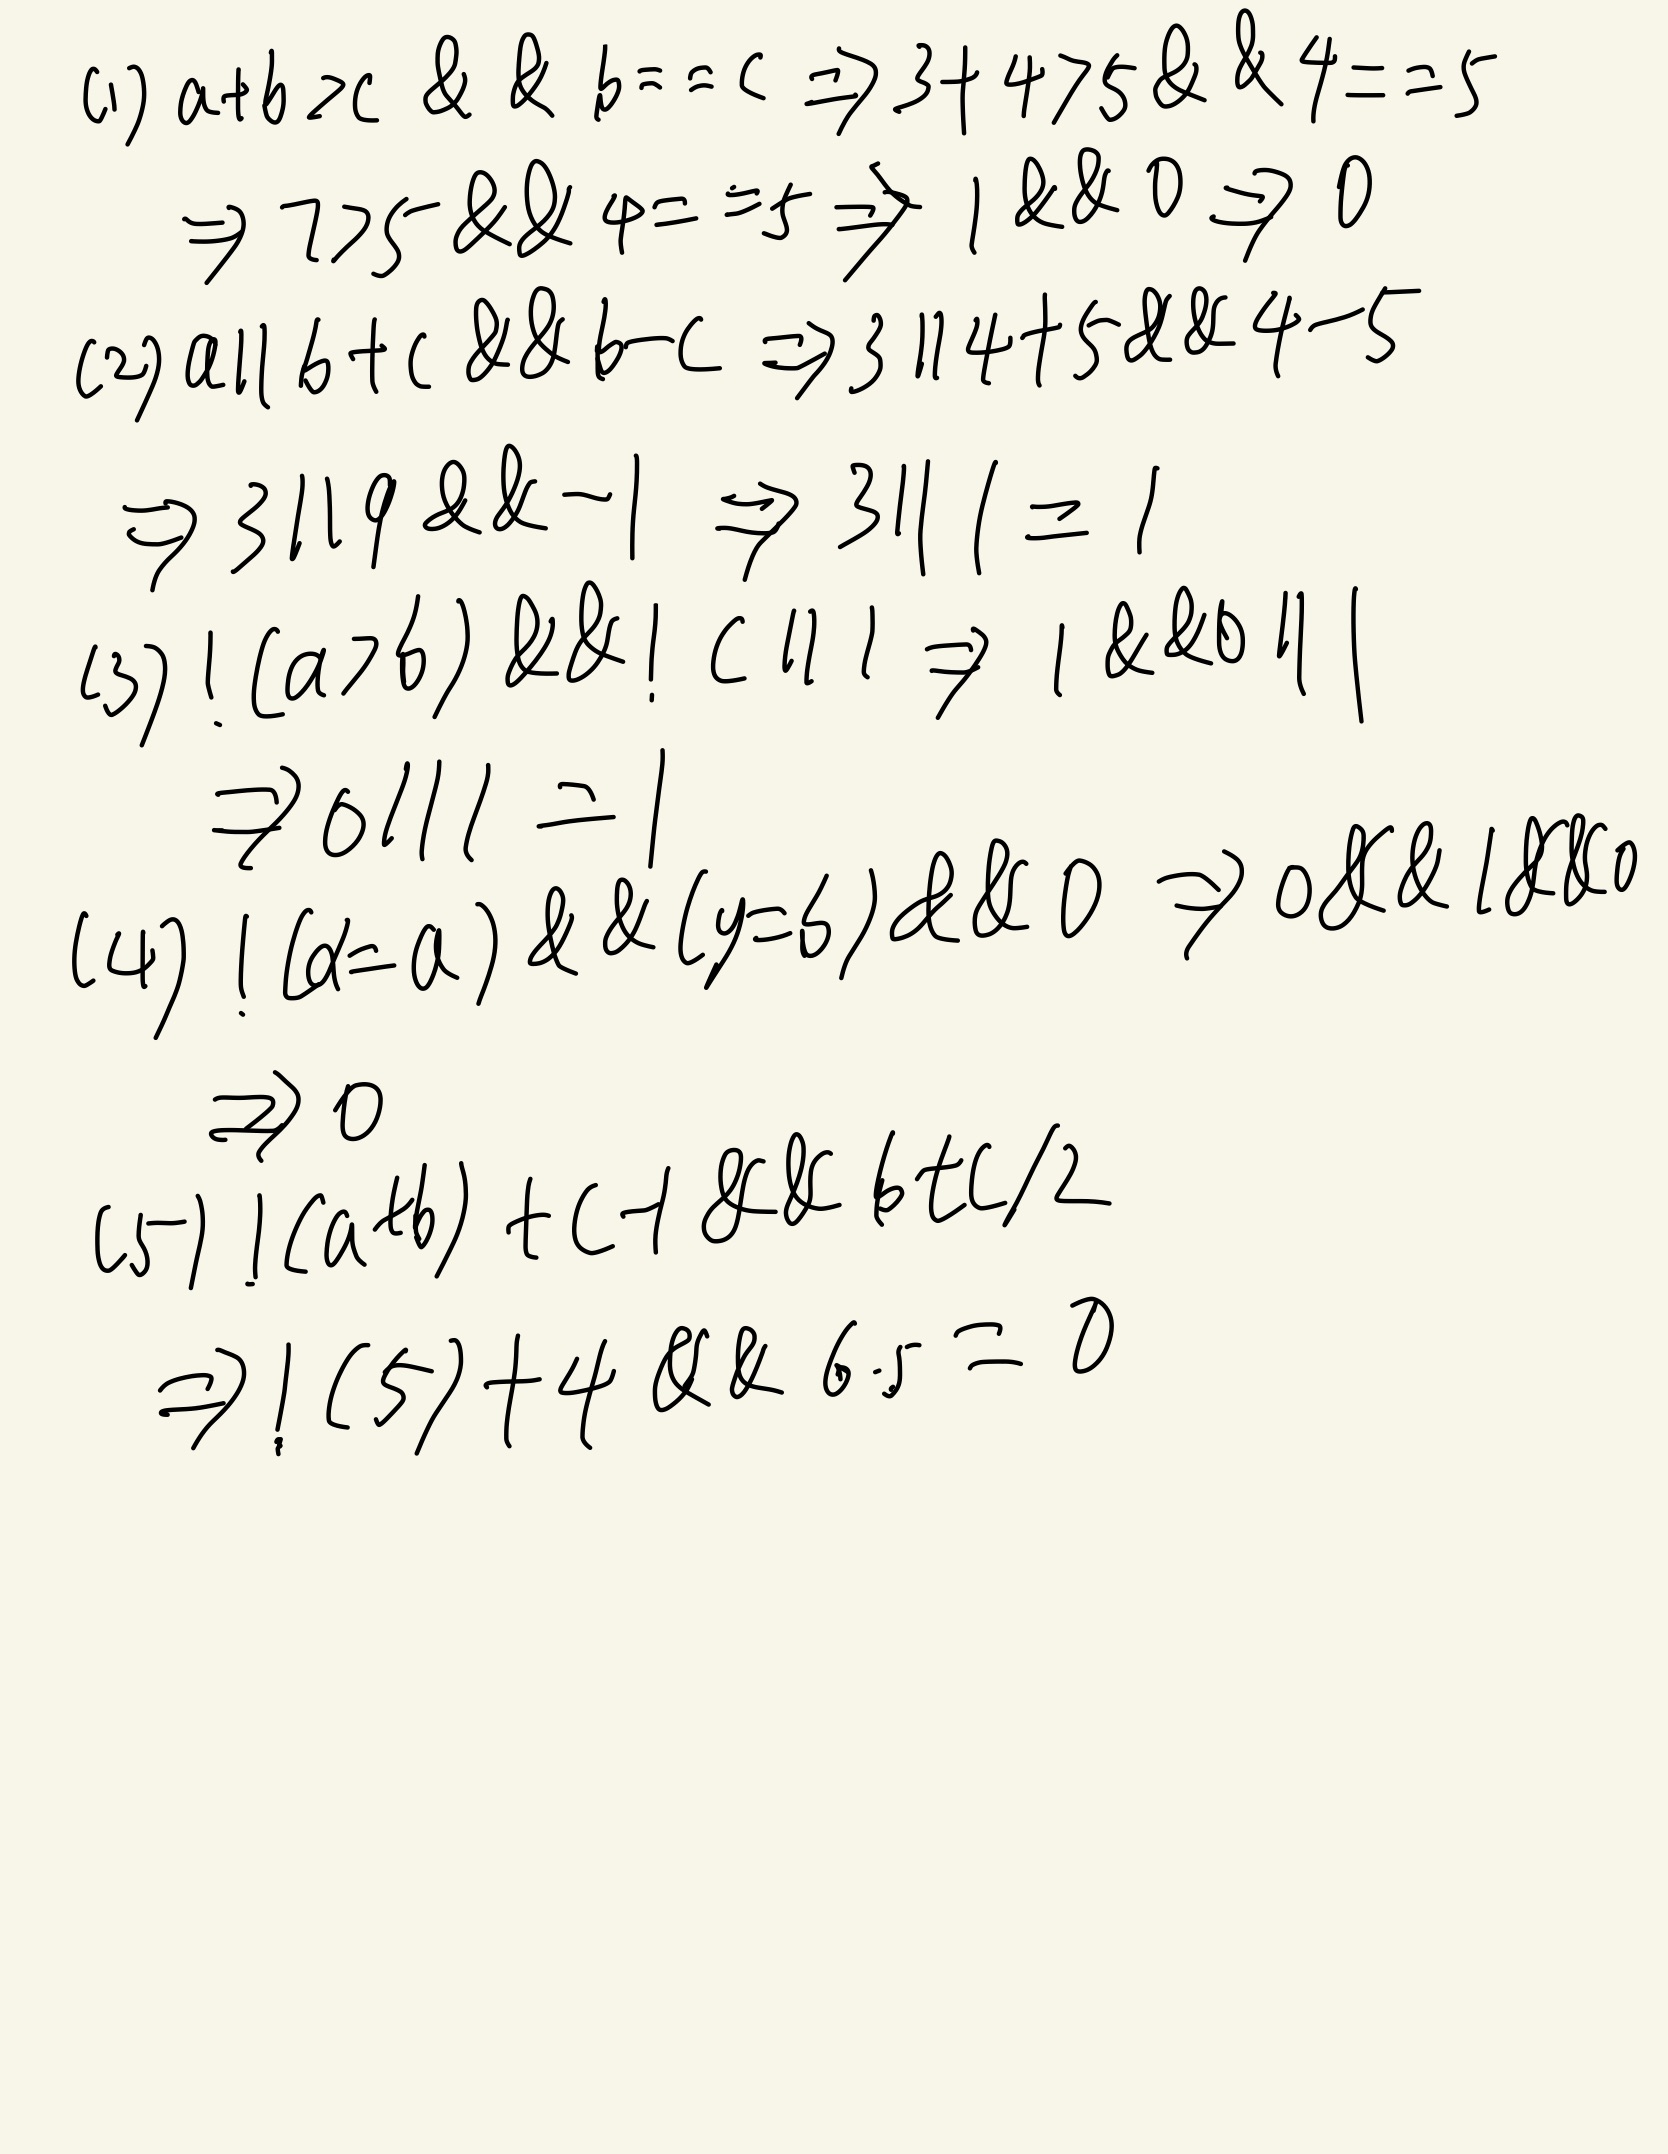 (1) a+b>c && b==c ⇒3+4>5&&4==5
⇒7>5&&4==5⇒1&&0⇒0
(2) a||b+c&&b-c ⇒3||4+5&&4-5
⇒3||9&&-1 ⇒3||1=1
(3) !(a>b)&&!c||1 ⇒1&&0||1
⇒0||1=1
(4) !(d=a)&&(y=b)&&0 ⇒0&&1&&0
⇒0
(5) !(a+b)+c-1&&b+c/2
⇒!(5)+4&&6.5=0